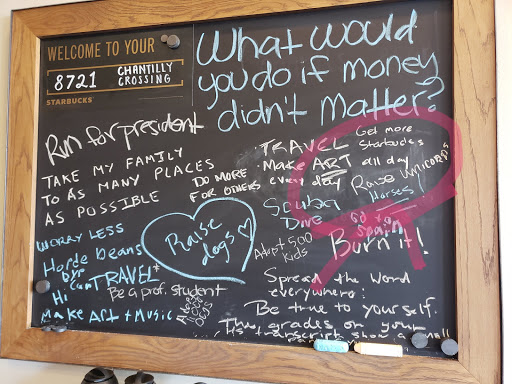 WELCOME TO YOUR
8721 CHANTILLY CROSSING
STARBUCKS
What would
you do if money
didn't matter?
Run for president
TAKE MY FAMILY
TO AS MANY PLACES
AS POSSIBLE
DO MORE
FOR OTHERS
TRAVEL
Make ART
every day
Get more
Starbucks
all day
Raise UNICORNS
Horses!
Scuba
Dive
Go to
Spain
Burn it!
WORRY LESS
Horde beans
Hi
TRAVEL
Be a prof. student
Make Art + Music
Raise
dogs
Adopt 500
kids
Spread the Word
everywhere!
Be true to yourself.
The grades on your
transcript show a small